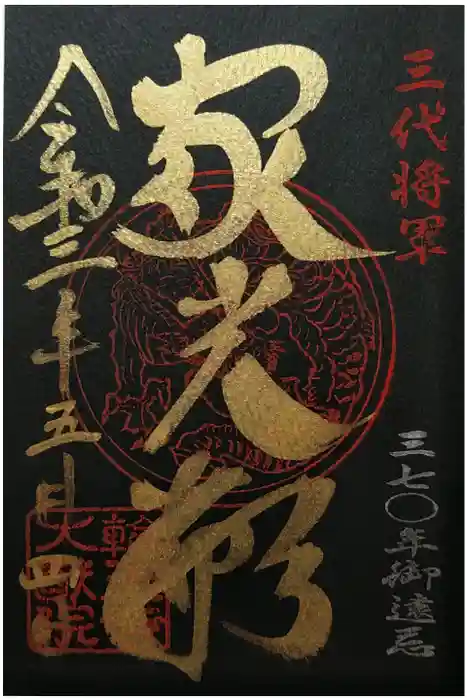 三代将軍
三七〇年御遠忌
家光公
令和三年五月四日
輪王寺
大猷院